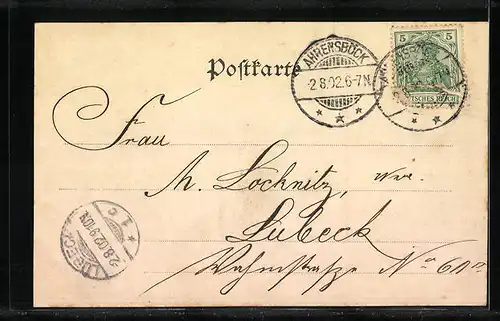 Postkarte
AHRENSBÖCK
2.8.02.6-7N.
5 5
DEUTSCHES REICH
Frau
M. Lochnitz, Wwe.
Lübeck
Wahmstraße No 60
LÜBECK
2.8.02.9-10N.
* 1 c